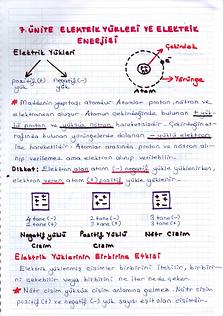 7. ÜNİTE ELEKTRİK YÜKLERİ VE ELEKTRİK
ENERJİSİ
Elektrik Yükleri
Çekirdek
pozitif(+) negatif(-)
yük yük
Yörünge
Atom
* Maddenin yapıtaşı atomdur. Atomlar proton, nötron ve
elektrondan oluşur. Atomun çekirdeğinde bulunan + yük-
lü proton ve yüksüz nötron hareketsizdir. Çekirdeğin et-
rafında bulunan yörüngelerde dolanan - yüklü elektron
ise hareketlidir. Atomlar arasında proton ve nötron alı-
nıp verilemez ama elektron alınıp verilebilir.
Dikkat: Elektron alan atom (-) negatif yükle yüklenirken,
elektron veren atom (+) pozitif yükle yüklenir.
4 tane (-) 2 tane (-) 3 tane (-)
2 tane (+) 3 tane (+)
Negatif Yüklü Pozitif Yüklü Nötr Cisim
Cisim Cisim
Elektrik Yüklerinin Birbirine Etkisi
Elektrik yüklenmiş cisimler birbirini itebilir, birbiri-
ni çekebilir veya birbirini ne iter ne de çeker.
* Nötr cisim yüksüz cisim anlamına gelmez. Nötr cisim
pozitif (+) ve negatif (-) yük sayısı eşit olan cisimdir.